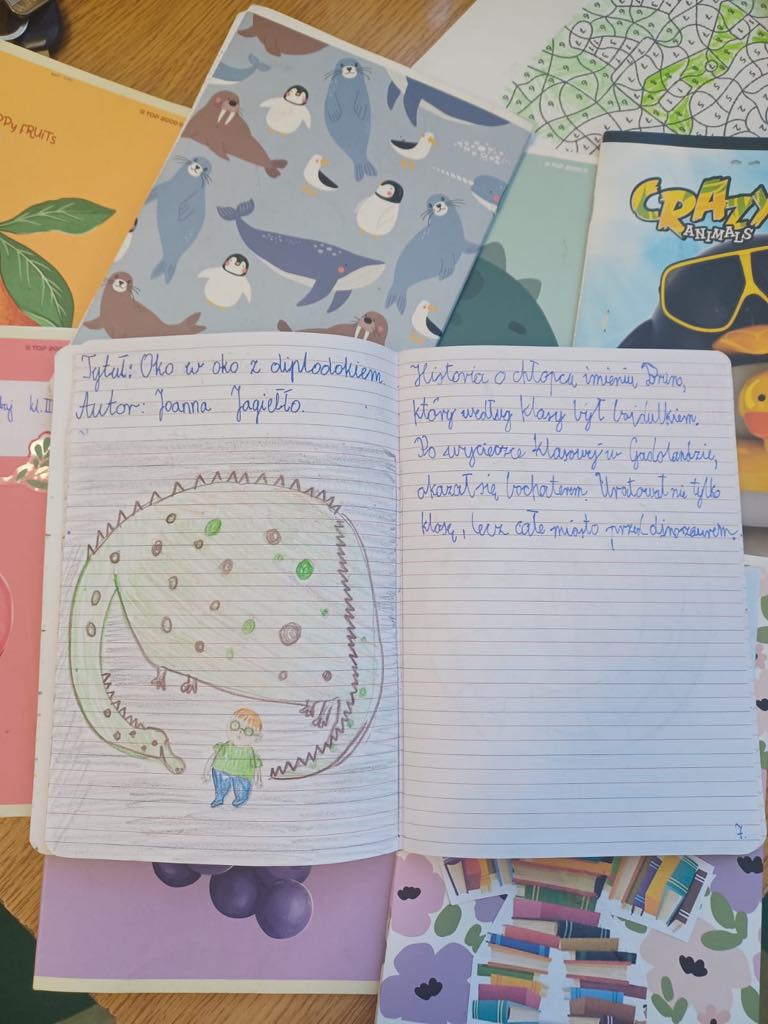 PPY FRUITS
© TOP 2000
CRAZY
ANIMALS
© TOP 2000
kl. II
Tytuł: Oko w oko z diplodokiem.
Autor: Joanna Jagiełło.
Historia o chłopcu, imieniu Bruno,
który według klasy był bajdulkiem.
Po wycieczce klasowej w Gadolandzie,
okazał się bochaterem. Uratował nie tylko
klasę, lecz całe miasto przed dinozaurem.
7.